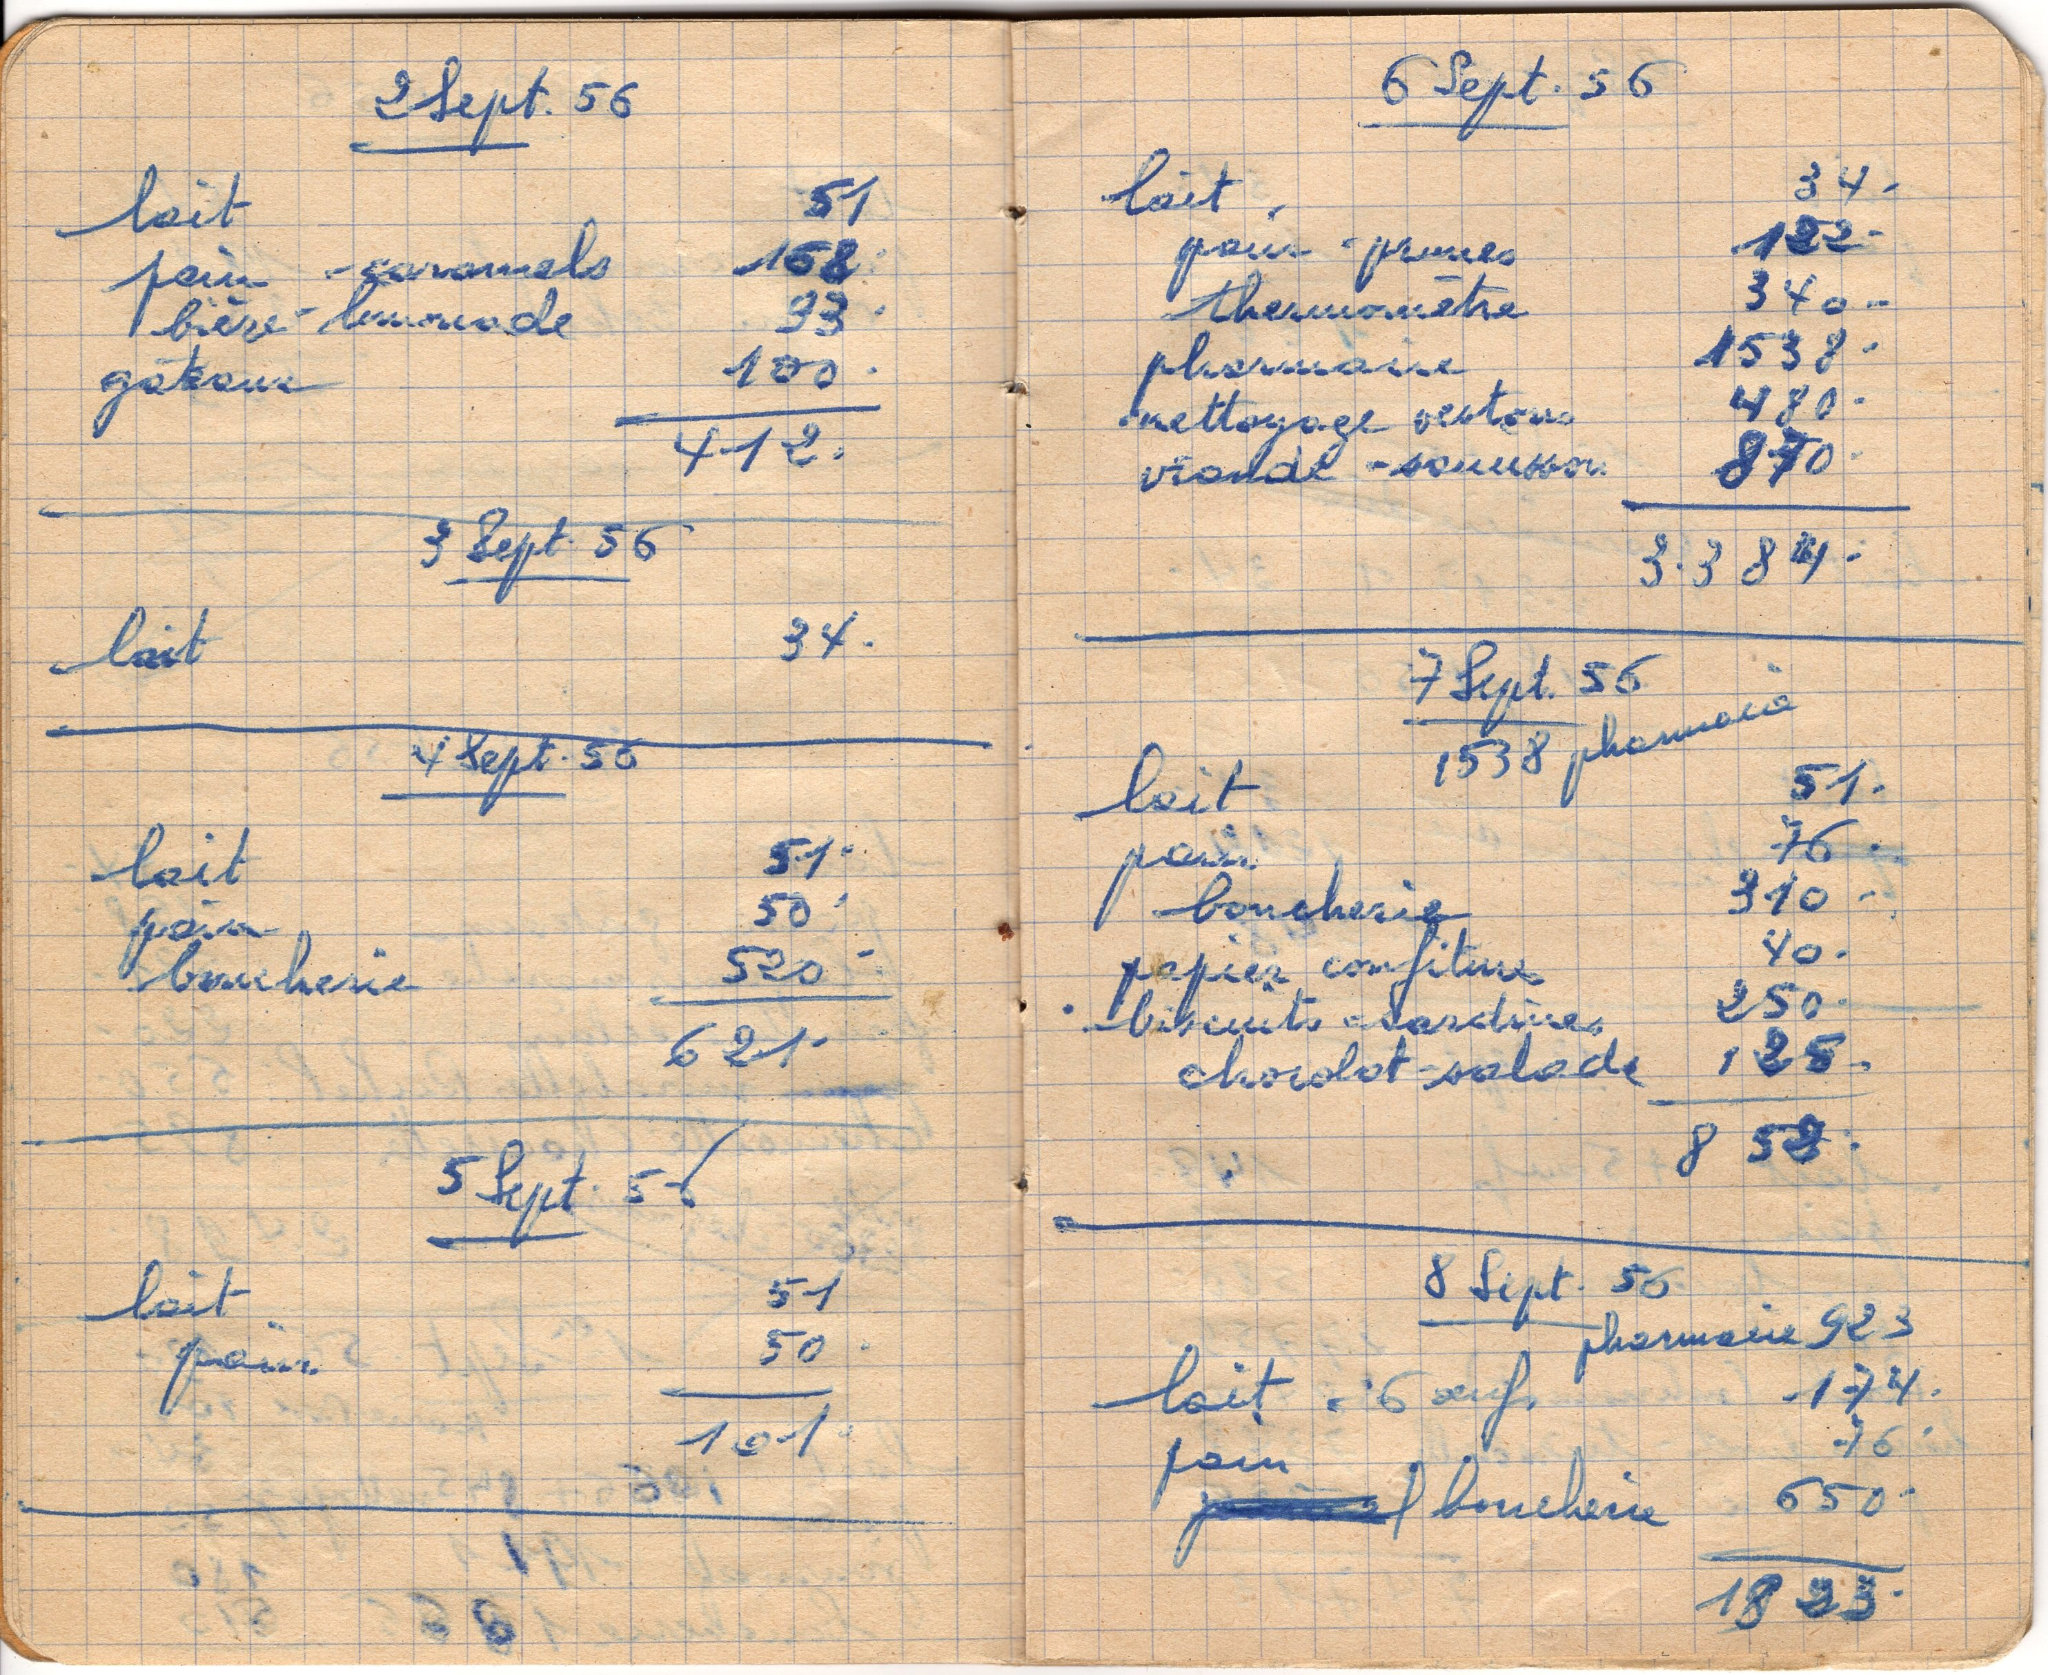 2 Sept. 56
lait 51
pain - caramels 168.
bière - limonade 93.
gâteaux 100.
412.
3 Sept. 56
lait 34.
4 Sept. 56
lait 51.
pain 50.
boucherie 520.
621.
5 Sept. 56
lait 51
pain 50.
101.
6 Sept. 56
lait. 34.
pain - prunes 122.
thermomètre 340.
pharmacie 1538.
nettoyage vestons 480.
viande - saucisson 870.
3.384.
7 Sept. 56
1538 pharmacie
lait 51.
pain 76.
boucherie 310.
papier confitures 40.
biscuits - sardines 250.
chocolat - salade 125.
852.
8 Sept. 56
pharmacie 923
lait - 6 œufs 174.
pain 76.
boucherie 650.
1823.